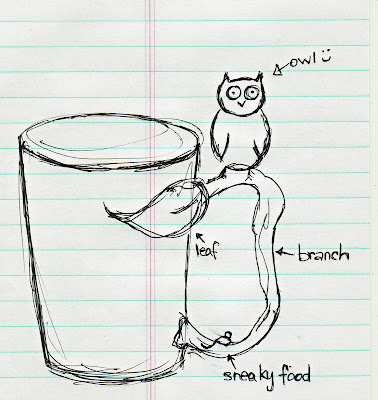 owl :)
leaf
branch
sneaky food